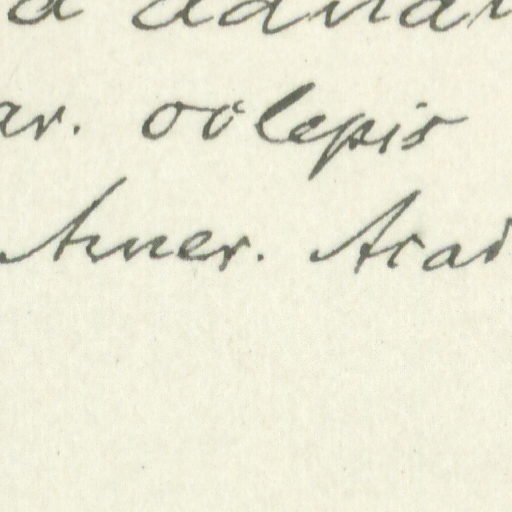 a adnan
ar. oolepis
Amer. Acad